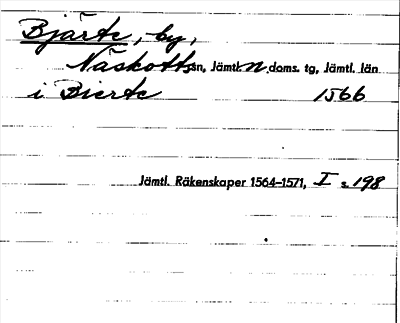 Bjärte, by,
Näskotts sn, Jämtl. n. doms. tg, Jämtl. län
i Bierte 1566
Jämtl. Räkenskaper 1564–1571, I s. 198